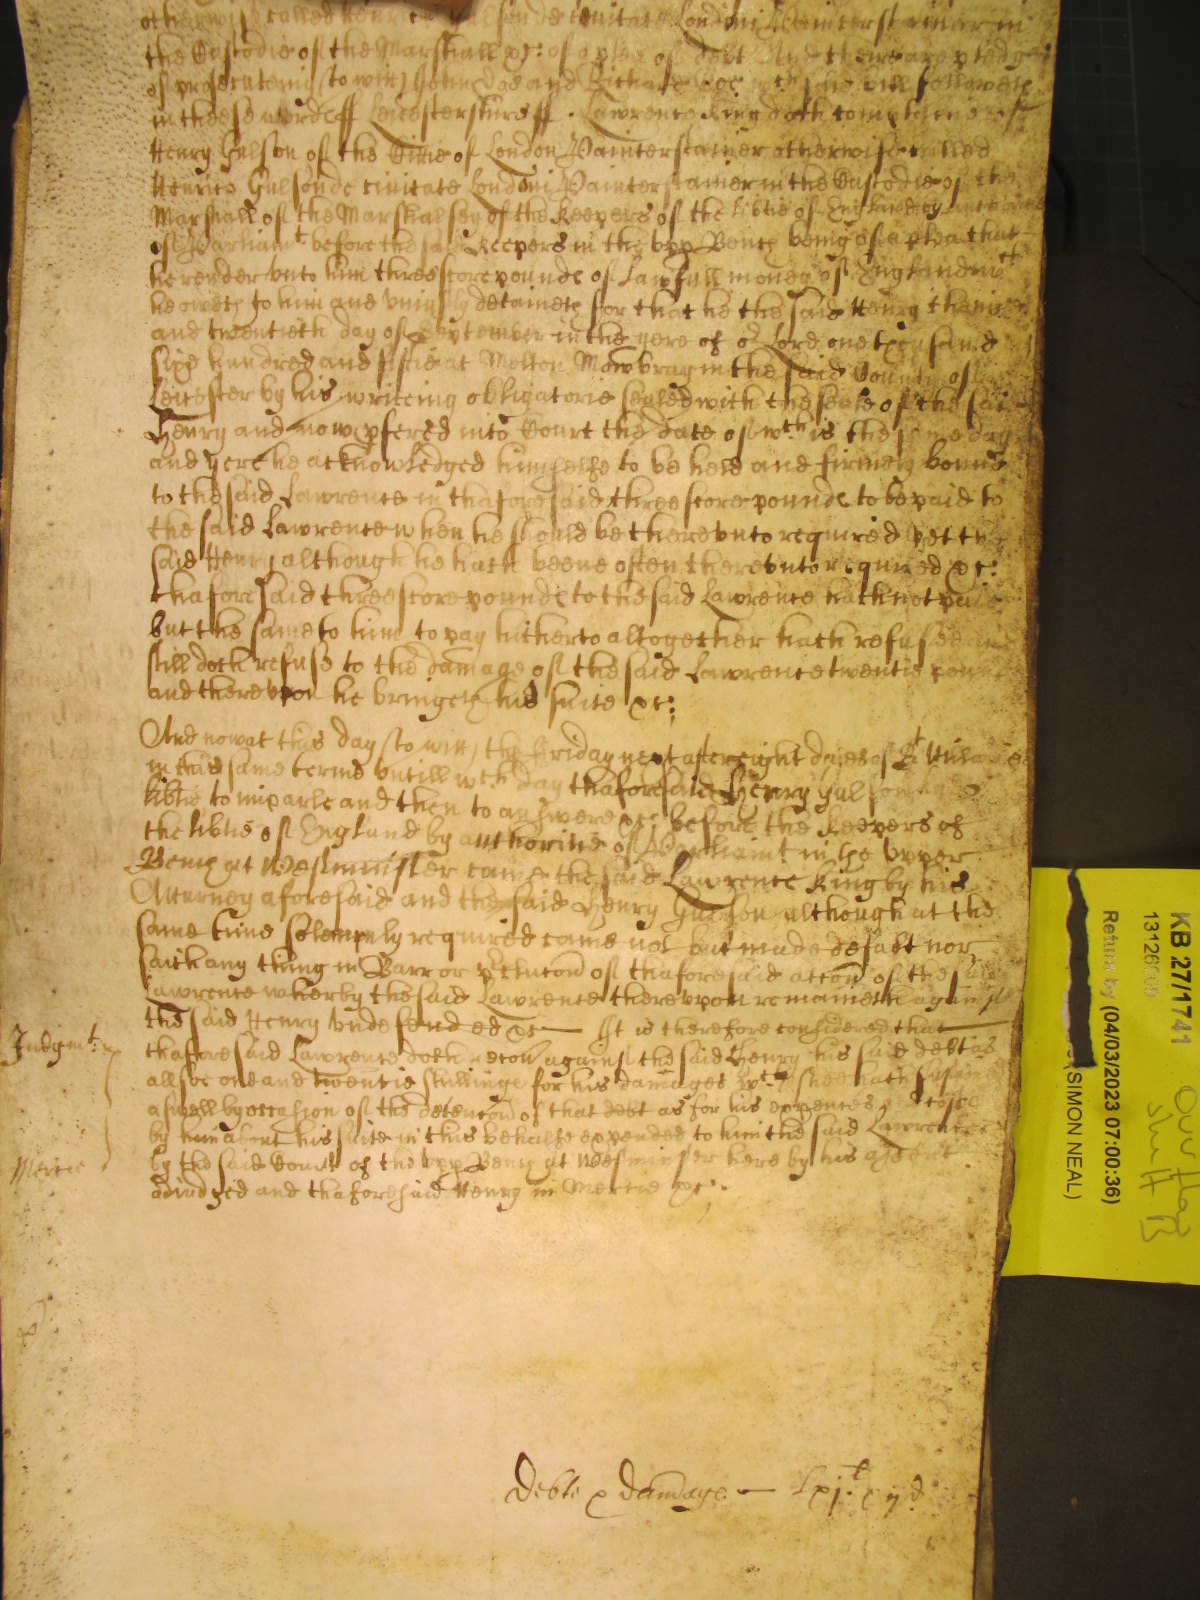 otherwise called Henricus Gulson de civitate Londini Painterstainer in
the Custodie of the Marshall &c: of a plea of debt And there are pledges
of prosecuteing (to witt) John Doe and Richard Roe wch said bill followeth
in theese wordes ff Leicestershire ff. Lawrence King doth complayne of
Henry Gulson of the Cittie of London Painterstainer otherwise called
Henrico Gulson de civitate Londini Painterstainer in the Custodie of the
Marshall of the Marshalsey of the Keepers of the libtie of England by authoritie
of Parliamt before the said Keepers in the vpp Bench being of a plea that
he render vnto him threescore pounde of Lawfull money of England wch
he oweth to him and vniustly detaineth for that he the said Henry the
and twentieth day of September in the yere of or Lord one thousand
sixe hundred and fiftie at Melton Mowbray in the said County of
Leicester by his writeing obligatorie sealed with the seale of the said
Henry and now pfered into Court the date of wch is the same day
and yere he acknowledged himselfe to be held and firmely bound
to the said Lawrence in thaforesaid threescore pounde to be paid to
the said Lawrence when he should be therevnto required Yet the
said Henry although he hath beene often therevnto required &c:
thaforesaid threescore pounde to the said Lawrence hath not paid
but the same to him to pay hitherto altogether hath refused and
still doth refuse to the damage of the said Lawrence twentie pound
and therevpon he bringeth his suite &c:
And now at this day (to witt) the Friday next after eight dayes of St Hilarie
in this same terme vntill wch day thaforesaid Henry Gulson had
libtie to imparle and then to answere &c: before the Keepers of
the libtie of England by authoritie of Parliamt in the vpper
Bench at Westminister came the said Lawrence King by his
Atturney aforesaid and the said Henry Gulson although at the
same time solempnly required came not but made default nor
saith any thing in Barr or pclucon of thaforesaid accon of the said
Lawrence wherby the said Lawrence therevpon remaineth against
the said Henry vndefended &c — It is therefore considered that
Judgmt
thaforesaid Lawrence doth recou against the said Henry his said debt as
allsoe one and twentie shillinge for his damages wch hee hath susteined
aswell by occasion of the detencon of that debt as for his expences and coste
by him about his suite in this behalfe expended to him the said Lawrence
by the said Court of the vpp Bench at Westminster here by his assent
Mercie
adiudged and thaforesaid Henry in Mercie &c.
Debte & damage — lxjl
KB 27/1741
Return by (04/03/2023 07:00:36)
(SIMON NEAL)